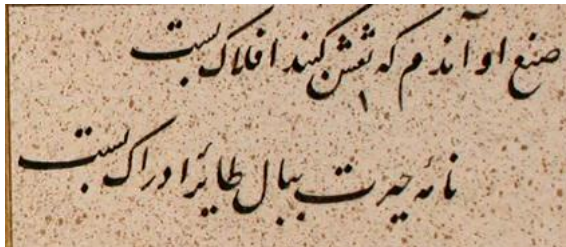 صنع او آندم که نقش گنبد افلاک بست
نامهٔ حیرت ببال طایر ادراک بست